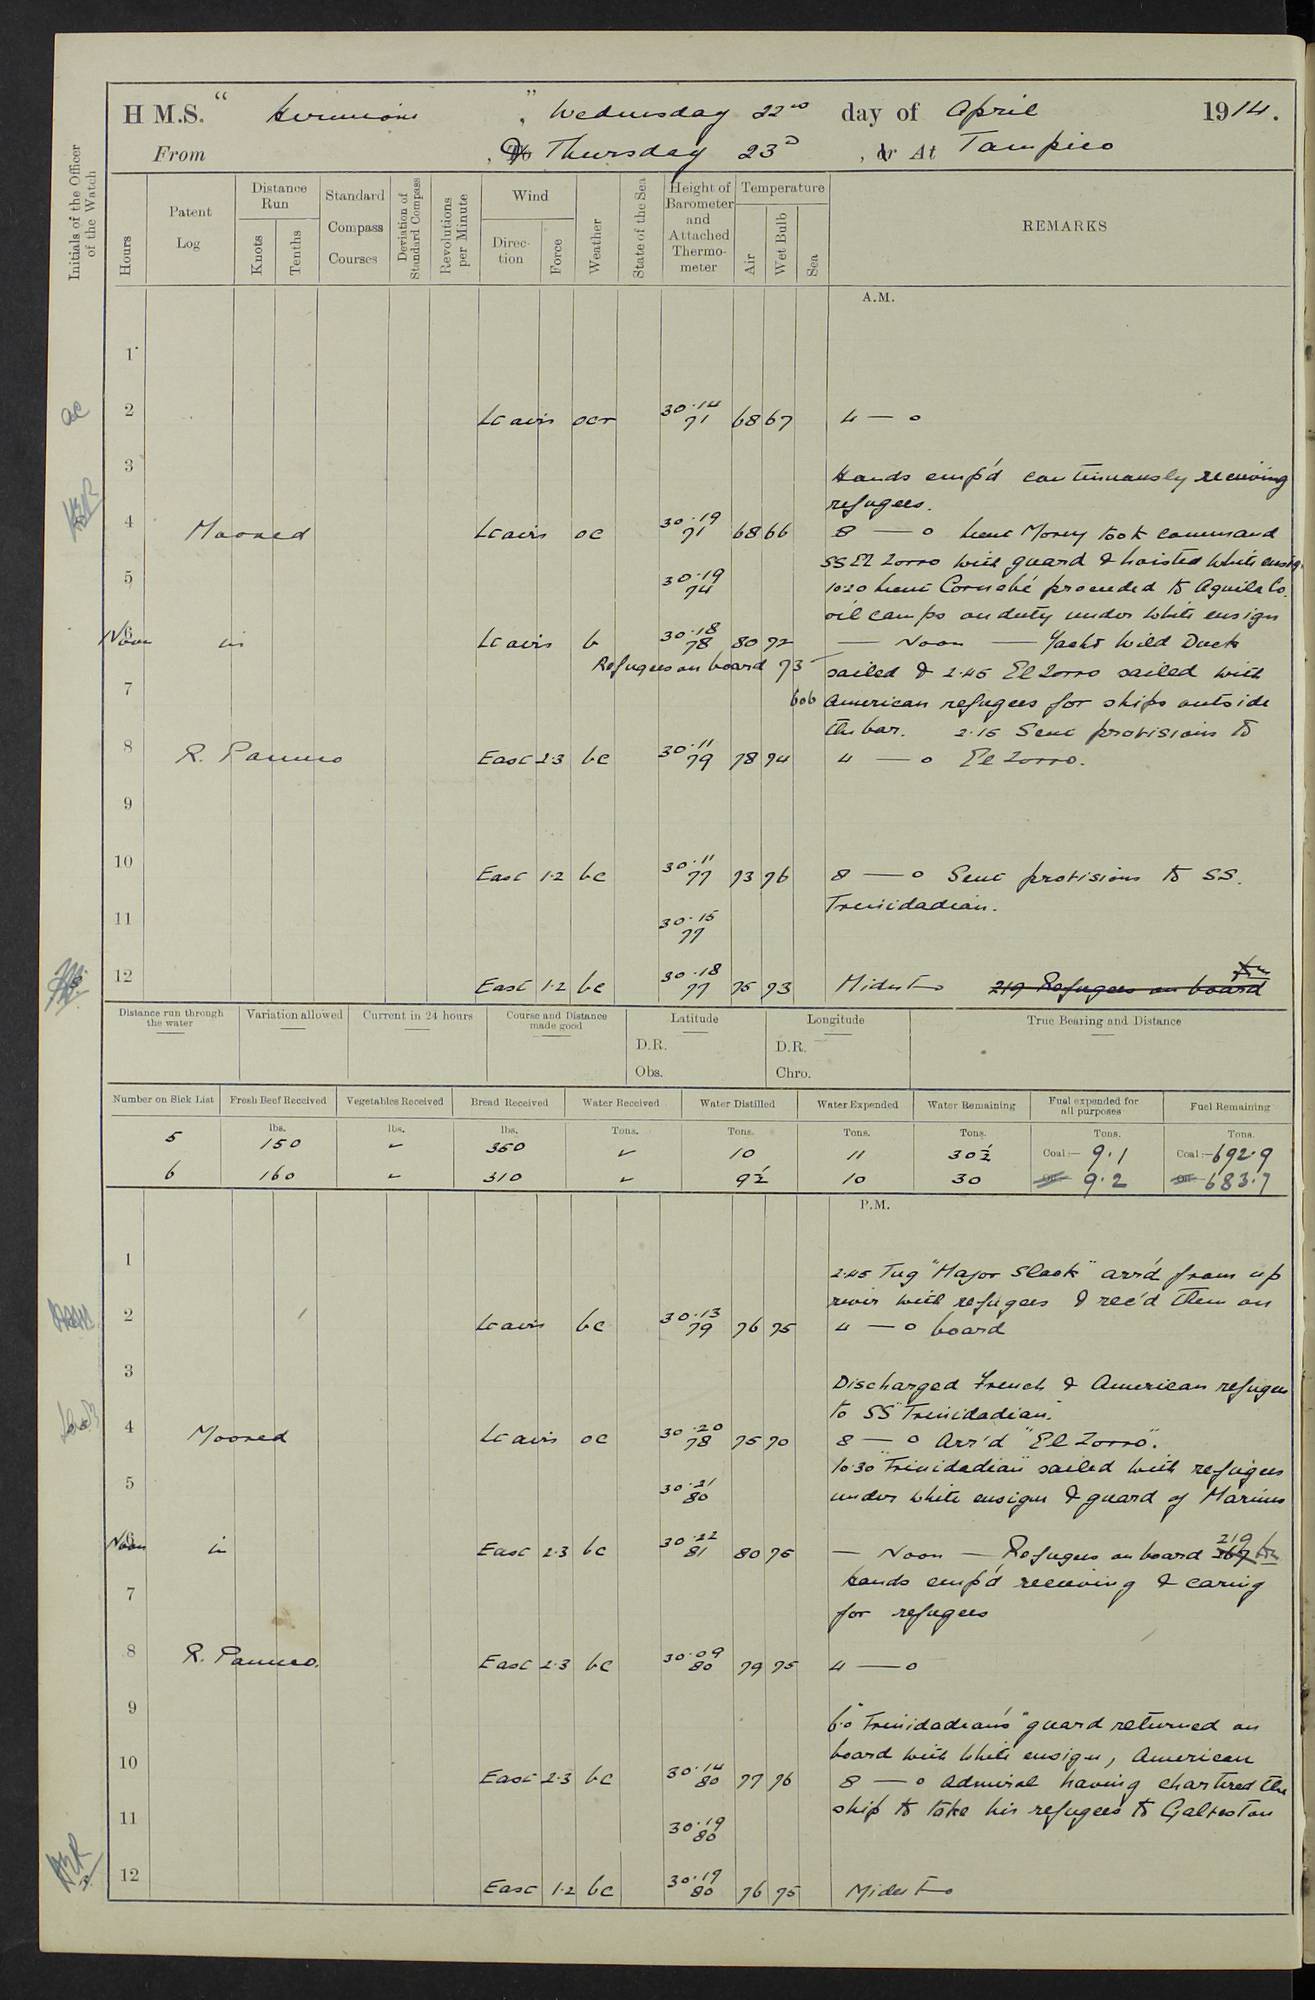 H.M.S. "Hermione", Wednesday 22nd day of April 1914.
From , To Thursday 23D , or At Tampico
Initials of the Officer of the Watch
Hours
Patent Log
Distance Run
Knots
Tenths
Standard Compass Courses
Deviation of Standard Compass
Revolutions per Minute
Wind
Direc-tion
Force
Weather
State of the Sea
Height of Barometer and Attached Thermo-meter
Temperature
Air
Wet Bulb
Sea
REMARKS
A.M.
1
2 Lt airs ocr 30.14 71 68 67 4 — 0
3
Hands emp'd continuously receiving
refugees.
4 Moored Lt airs oc 30.19 71 68 66 8 — 0 Lieut Money took command
SS El Zorro with guard & hoisted white ensign
5 30.19 74 10.20 Lieut proceeded to Aguila Co.
oil camps on duty under white ensign
Noon in Lt airs b 30.18 78 80 72 — Noon — Yacht Wild Duck
Refugees on board 73 sailed & 2.45 El Zorro sailed with
7 606 American refugees for ships outside
the bar. 2.15 Sent provisions to
8 R. Panuco East 2.3 bc 30.11 79 78 74 4 — 0 El Zorro.
9
10 East 1.2 bc 30.11 77 73 76 8 — 0 Sent provisions to SS.
Trinidadian.
11 30.15 77
12 East 1.2 bc 30.18 77 75 73 Midnt 219 Refugees on board
Distance run through the water
Variation allowed
Current in 24 hours
Course and Distance made good
Latitude
D.R.
Obs.
Longitude
D.R.
Chro.
True Bearing and Distance
Number on Sick List Fresh Beef Received Vegetables Received Bread Received Water Received Water Distilled Water Expended Water Remaining Fuel expended for all purposes Fuel Remaining
lbs. lbs. lbs. Tons. Tons. Tons. Tons. Tons. Tons.
5 150 ✓ 350 ✓ 10 11 30½ Coal:— 9.1 Coal:— 692.9
6 160 ✓ 310 ✓ 9½ 10 30 Oil 9.2 Oil 683.7
P.M.
1
2.45 Tug "Major Slack" arr'd from up
river with refugees & rec'd them on
2 Lt airs bc 30.13 79 76 75 4 — 0 board
3
Discharged French & American refugees
to SS "Trinidadian."
4 Moored Lt airs oc 30.20 78 75 70 8 — 0 Arr'd "El Zorro".
10.30 "Trinidadian" sailed with refugees
5 30.21 80 under white ensign & guard of Marines
Noon in East 2.3 bc 30.22 81 80 75 — Noon — Refugees on board 219 367
Hands emp'd receiving & caring
7
for refugees
8 R. Panuco. East 2.3 bc 30.09 80 79 75 4 — 0
9
6.0 "Trinidadian's" guard returned on
board with white ensign, American
10 East 2.3 bc 30.14 80 77 76 8 — 0 Admiral having chartered the
ship to take his refugees to Galveston
11 30.19 80
12 East 1.2 bc 30.19 80 76 75 Midnt